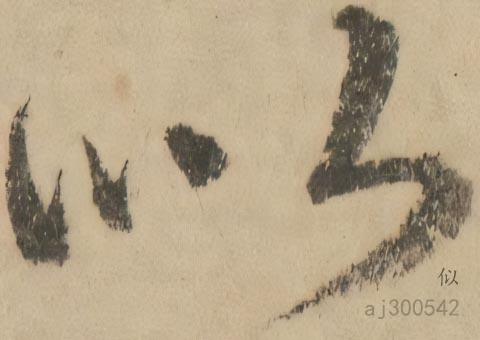 似
似
aj300542